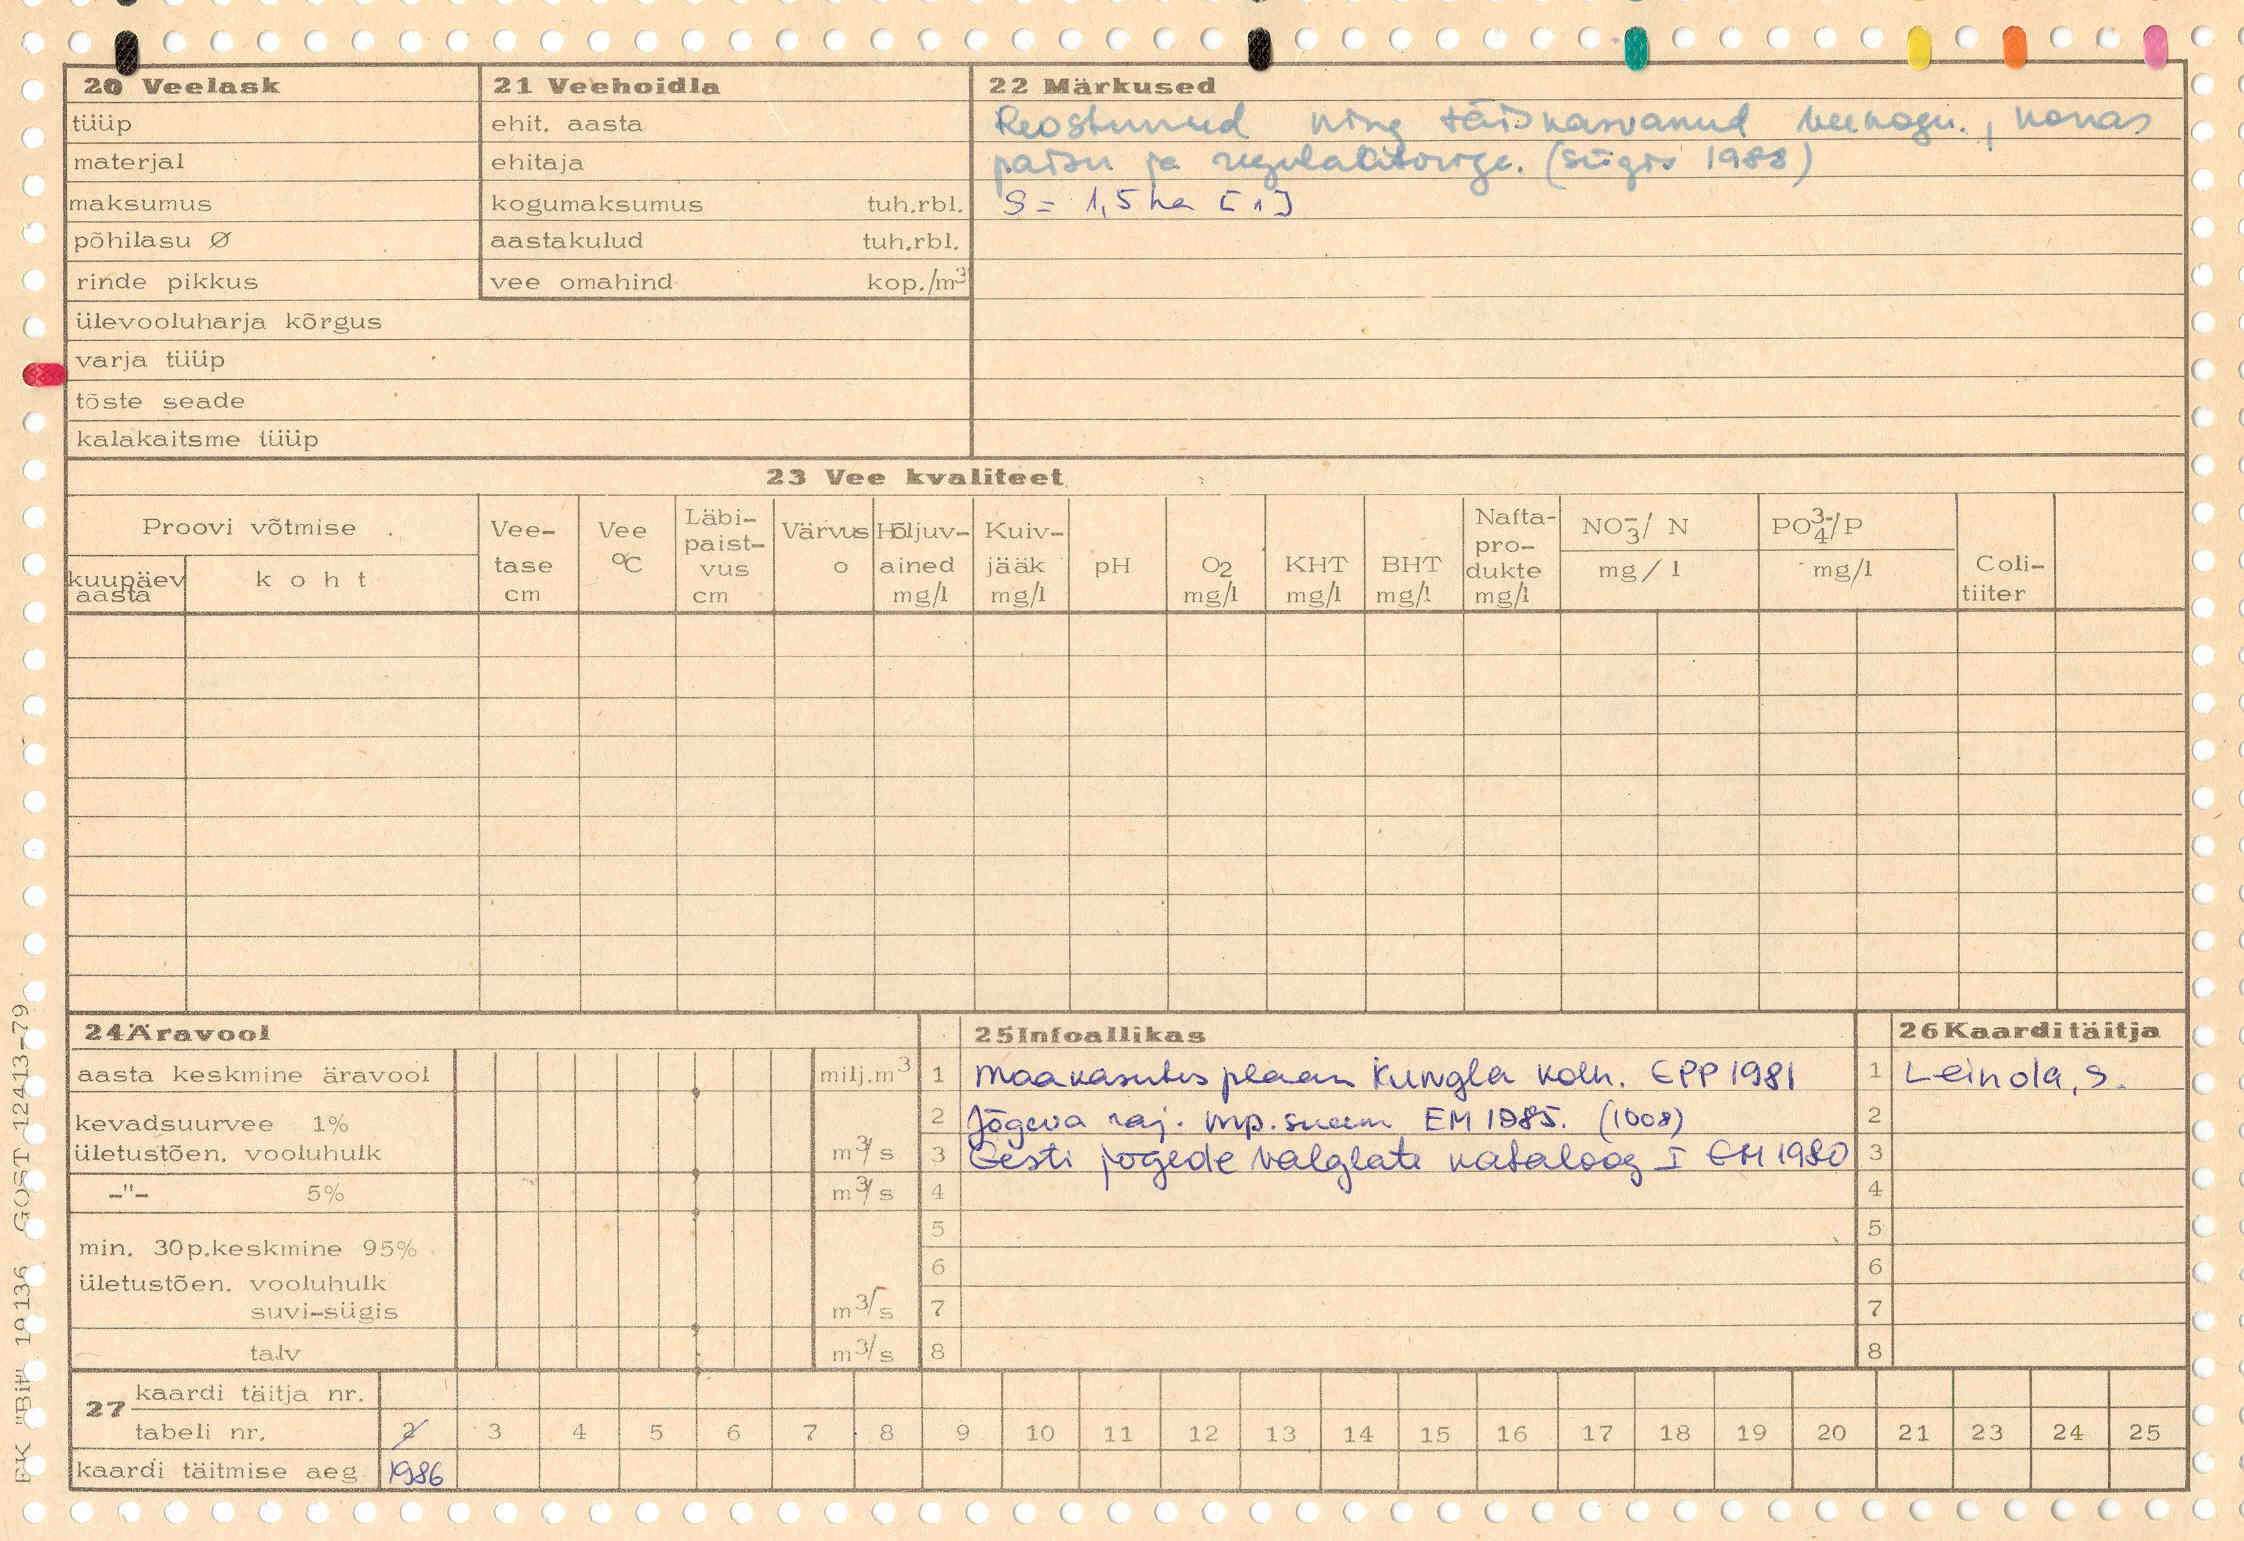 20 Veelask
tüüp
materjal
maksumus
põhilasu Ø
rinde pikkus
ülevooluharja kõrgus
varja tüüp
tõste seade
kalakaitsme tüüp
21 Veehoidla
ehit. aasta
ehitaja
kogumaksumus tuh.rbl.
aastakulud tuh.rbl.
vee omahind kop./m³
22 Märkused
Reostunud ning täiskasvanud veekogu, koos
paisu ja regulaatoriga. (sügis 1988)
S = 1,5 ha [1]
23 Vee kvaliteet
Proovi võtmise
kuupäev
aasta
koht
Vee-
tase
cm
Vee
°C
Läbi-
paist-
vus
cm
Värvus
o
Hõljuv-
ained
mg/l
Kuiv-
jääk
mg/l
pH
O2
mg/l
KHT
mg/l
BHT
mg/l
Nafta-
pro-
dukte
mg/l
NO₃⁻/ N
mg/l
PO₄³⁻/P
mg/l
Coli-
tiiter
24 Äravool
aasta keskmine äravool milj.m³
kevadsuurvee 1%
ületustõen. vooluhulk m³/s
-"- 5% m³/s
min. 30p.keskmine 95%
ületustõen. vooluhulk
suvi-sügis m³/s
talv m³/s
25 Infoallikas
1 Maakasutusplaan Kungla kolh. EPP 1981
2 Jõgeva raj. mp. skeem EM 1985. (1008)
3 Eesti jõgede valglate kataloog I EM 1980
4
5
6
7
8
26 Kaarditäitja
1 Leinola, S.
2
3
4
5
6
7
8
27 kaardi täitja nr.
tabeli nr. 2 3 4 5 6 7 8 9 10 11 12 13 14 15 16 17 18 19 20 21 23 24 25
kaardi täitmise aeg 1986
EK "Bit" 19136 GOST 12413-79